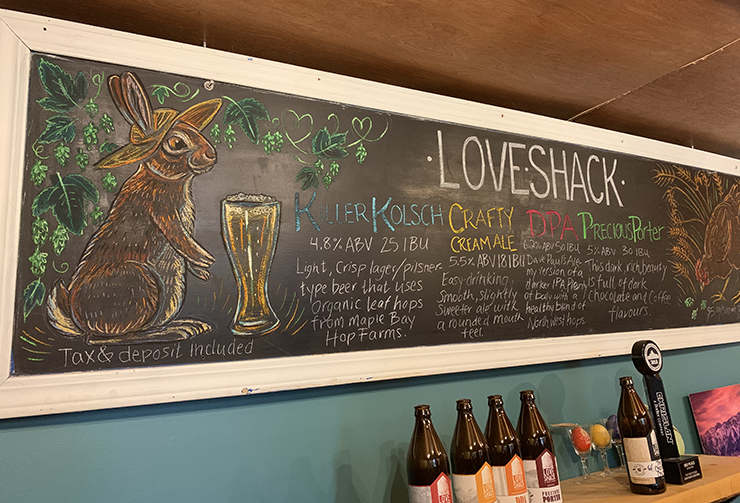 ·LOVE·SHACK·
KILLER KOLSCH
4.8% ABV 25 IBU
Light, Crisp lager/pilsner
type beer that uses
Organic leaf hops
from Maple Bay
Hop Farms.
CRAFTY
CREAM ALE
5.5% ABV 18 IBU
Easy-drinking,
Smooth, Slightly
Sweeter ale with
a rounded mouth
feel.
DPA
6.2% ABV 50 IBU
Dave Paul's Ale-
my version of a
darker IPA. Plenty
of body with a
healthy blend of
Northwest hops.
PRECIOUS PORTER
5% ABV 30 IBU
This dark, rich beauty
is full of dark
Chocolate and Coffee
flavours.
Tax & deposit included
PRECIOUS
PORTER